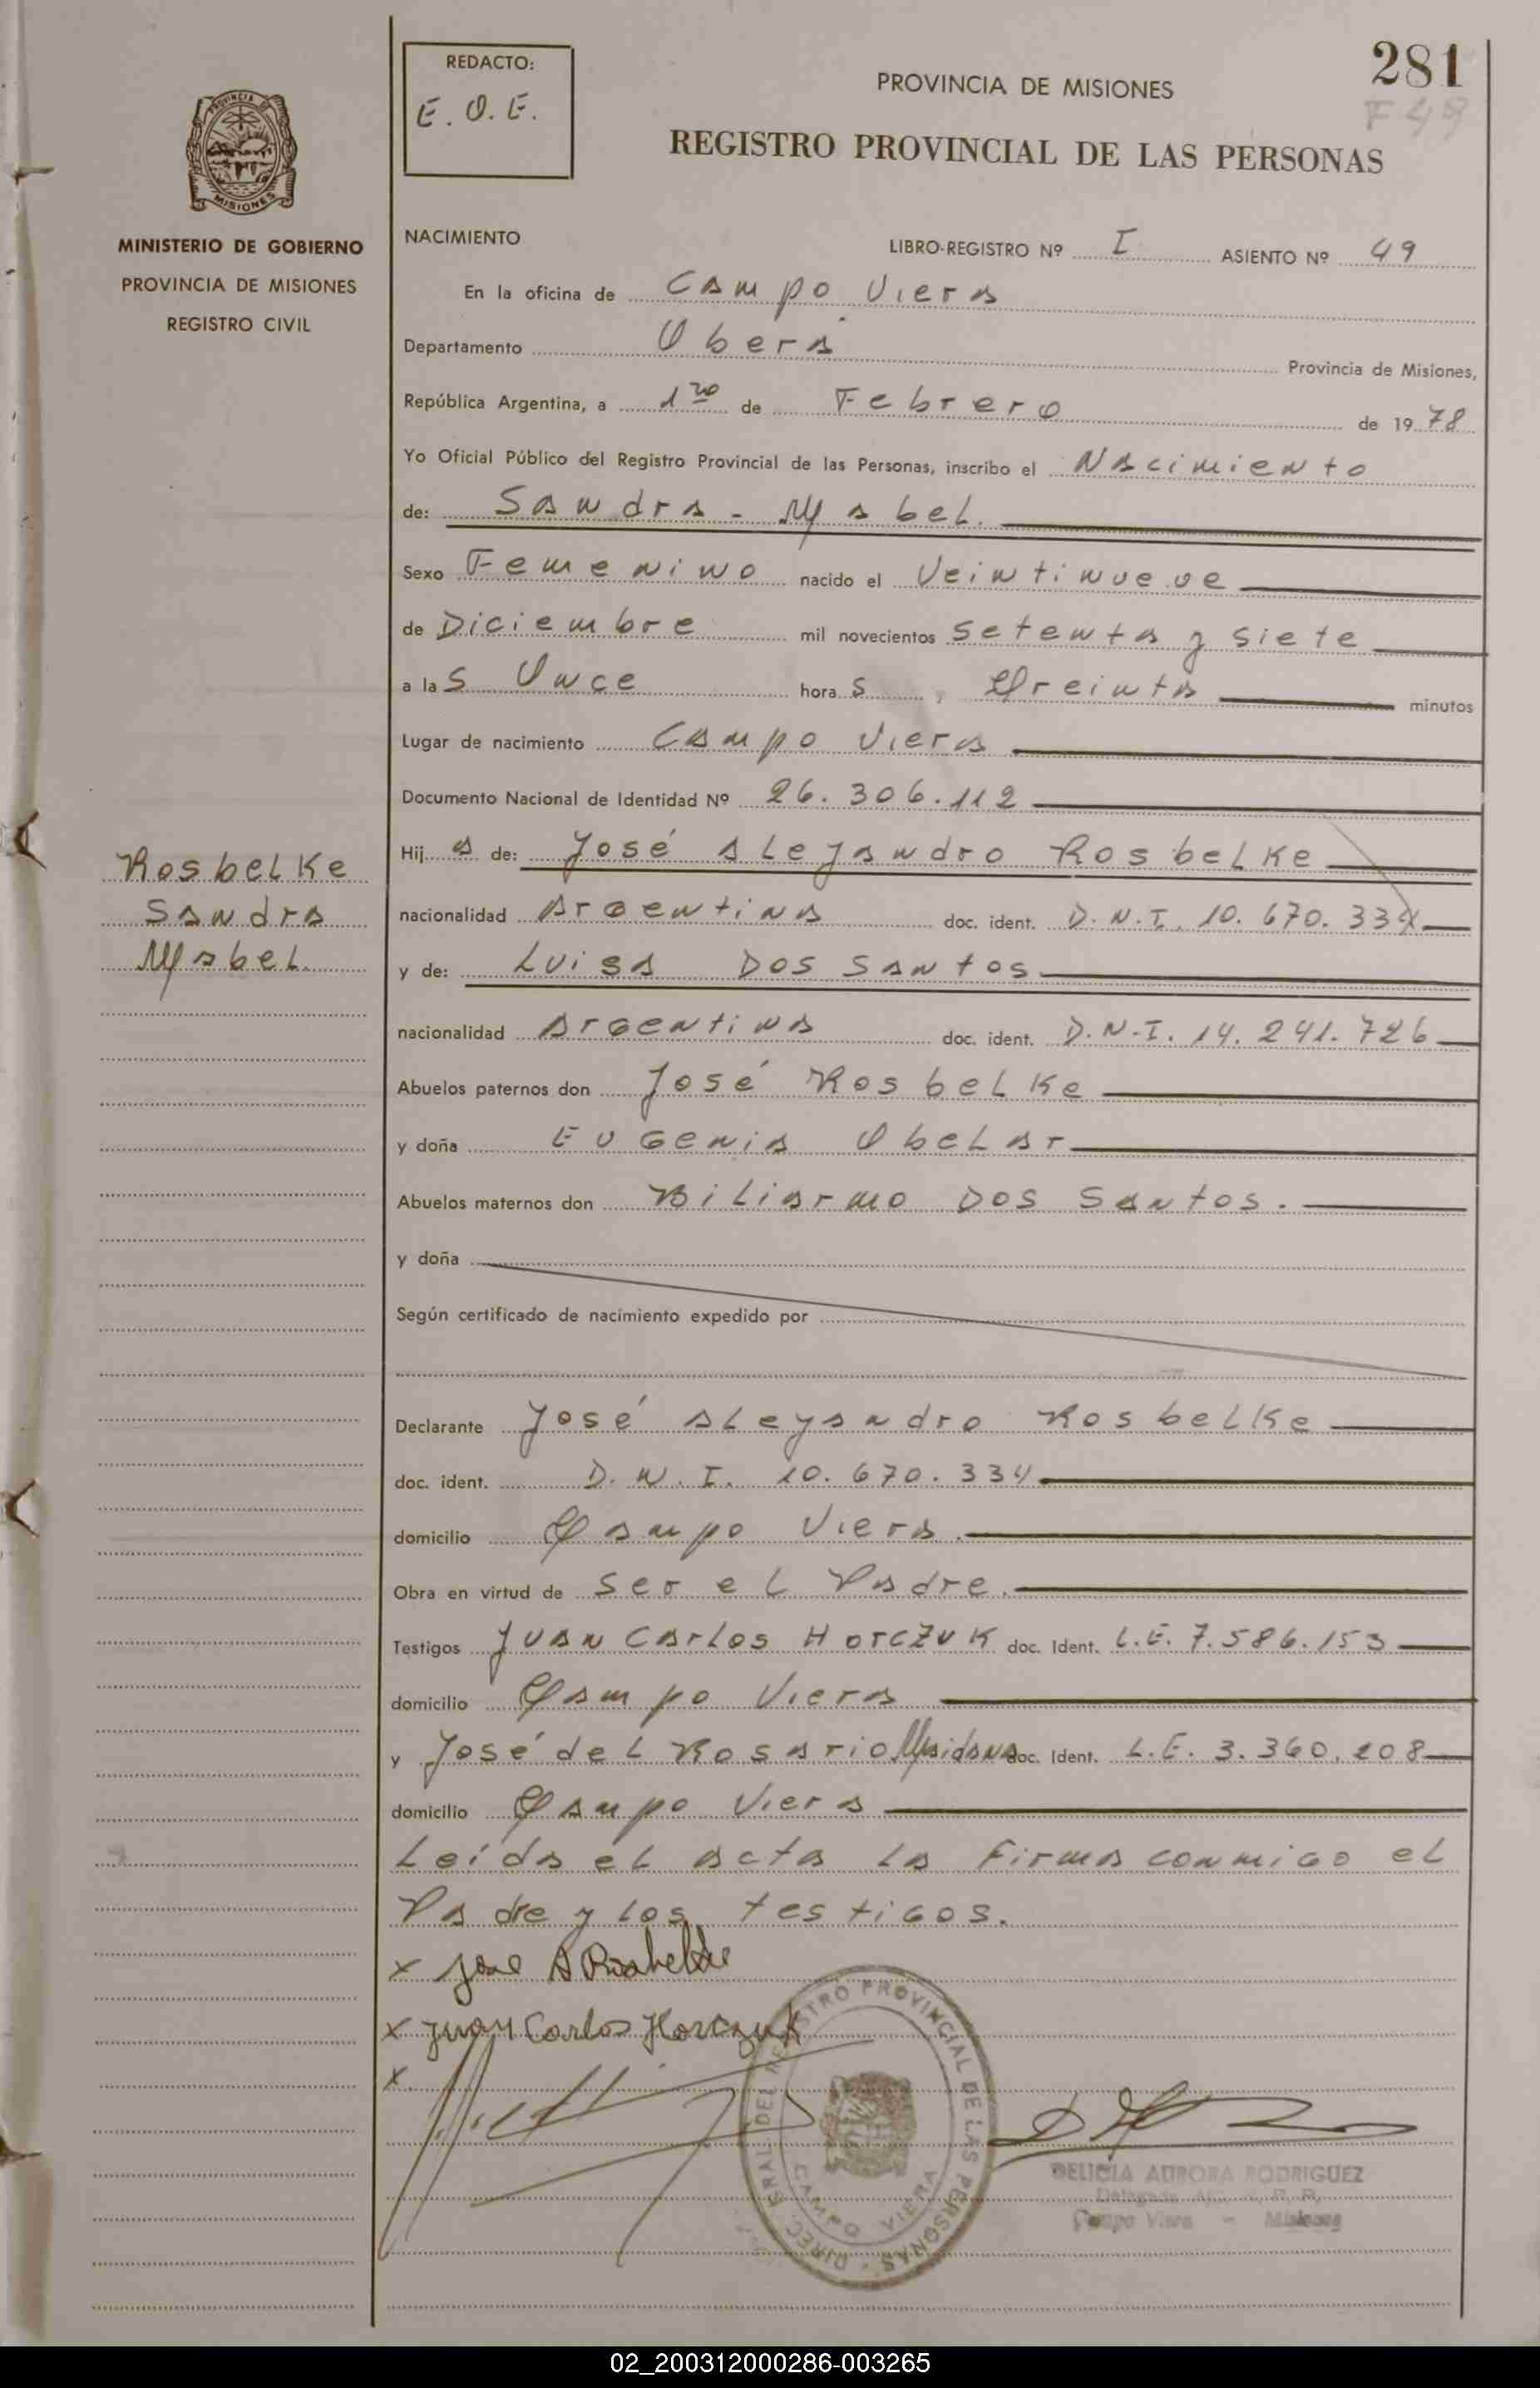 281
F 49
REDACTO:
E. O. E.
PROVINCIA DE MISIONES
REGISTRO PROVINCIAL DE LAS PERSONAS
PROVINCIA DE
MISIONES
MINISTERIO DE GOBIERNO
PROVINCIA DE MISIONES
REGISTRO CIVIL
NACIMIENTO
LIBRO-REGISTRO Nº I ASIENTO Nº 49
En la oficina de Campo Viera
Departamento Oberá Provincia de Misiones,
República Argentina, a 1ro de Febrero de 1978
Yo Oficial Público del Registro Provincial de las Personas, inscribo el Nacimiento
de: Sandra - Mabel.
Sexo Femenino nacido el Veintinueve
de Diciembre mil novecientos setenta y siete
a las Once horas, Treinta minutos
Lugar de nacimiento Campo Viera
Documento Nacional de Identidad Nº 26.306.112
Hija de: José Aleyandro Rosbelke
nacionalidad Argentina doc. ident. D.N.I. 10.670.334
y de: Luisa Dos Santos
nacionalidad Argentina doc. ident. D.N.I. 14.241.726
Abuelos paternos don José Rosbelke
y doña Eugenia Obelar
Abuelos maternos don Biliarmo Dos Santos.
y doña
Según certificado de nacimiento expedido por
Declarante José Aleyandro Rosbelke
doc. ident. D.N.I. 10.670.334
domicilio Campo Viera.
Obra en virtud de ser el Padre.
Testigos Juan Carlos Horczuk doc. Ident. L.E. 7.586.153
domicilio Campo Viera
y José del Rosario Maidana doc. Ident. L.E. 3.360.208
domicilio Campo Viera
Leída el acta la firma conmigo el
Padre y los testigos.
x Jose A Rosbelke
x Juan Carlos Horczuk
x
Rosbelke
Sandra
Mabel.
DIREC. GRAL. DEL REGISTRO PROVINCIAL DE LAS PERSONAS
CAMPO VIERA
DELICIA AURORA RODRIGUEZ
Campo Viera - Misiones
02_200312000286-003265